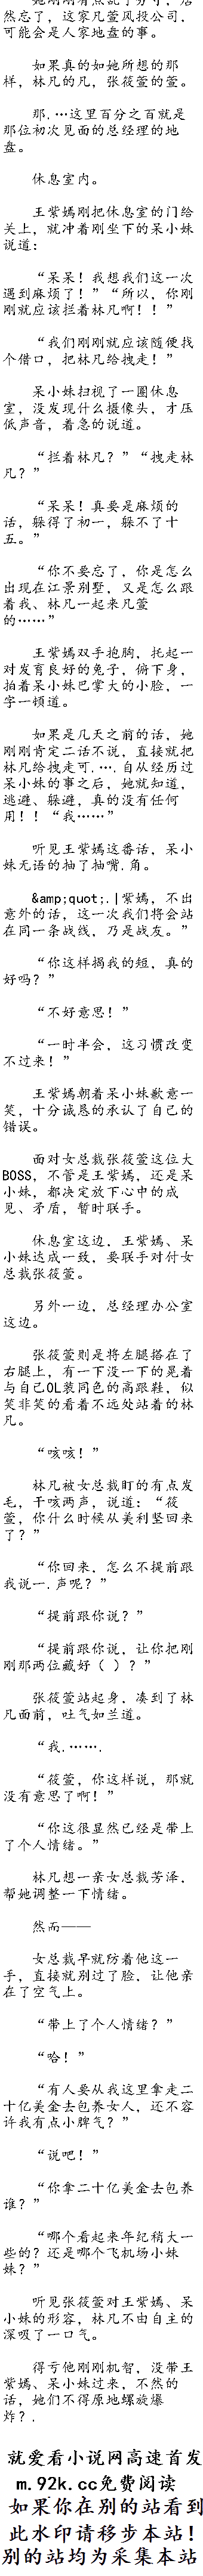 然忘了，这家凡萱风投公司，
可能会是人家地盘的事。
如果真的如她所想的那
样，林凡的凡，张筱萱的萱。
那.…这里百分之百就是
那位初次见面的总经理的地
盘。
休息室内。
王紫嫣刚把休息室的门给
关上，就冲着刚坐下的呆小妹
说道：
“呆呆！我想我们这一次
遇到麻烦了！”“所以，你刚
刚就应该拦着林凡啊！！”
“我们刚刚就应该随便找
个借口，把林凡给拽走！”
呆小妹扫视了一圈休息
室，没发现什么摄像头，才压
低声音，着急的说道。
“拦着林凡？”“拽走林
凡？”
“呆呆！真要是麻烦的
话，躲得了初一，躲不了十
五。”
“你不要忘了，你是怎么
出现在江景别墅，又是怎么跟
着我、林凡一起来凡萱
的……”
王紫嫣双手抱胸，托起一
对发育良好的兔子，俯下身，
拍着呆小妹巴掌大的小脸，一
字一顿道。
如果是几天之前的话，她
刚刚肯定二话不说，直接就把
林凡给拽走可.….自从经历过
呆小妹的事之后，她就知道，
逃避、躲避，真的没有任何
用！！“我……”
听见王紫嫣这番话，呆小
妹无语的抽了抽嘴.角。
&amp;quot;.|紫嫣，不出
意外的话，这一次我们将会站
在同一条战线，乃是战友。”
“你这样揭我的短，真的
好吗？”
“不好意思！”
“一时半会，这习惯改变
不过来！”
王紫嫣朝着呆小妹歉意一
笑，十分诚恳的承认了自己的
错误。
面对女总裁张筱萱这位大
BOSS，不管是王紫嫣，还是呆
小妹，都决定放下心中的成
见、矛盾，暂时联手。
休息室这边，王紫嫣、呆
小妹达成一致，要联手对付女
总裁张筱萱。
另外一边，总经理办公室
这边。
张筱萱则是将左腿搭在了
右腿上，有一下没一下的晃着
与自己OL装同色的高跟鞋，似
笑非笑的看着不远处站着的林
凡。
“咳咳！”
林凡被女总裁盯的有点发
毛，干咳两声，说道：“筱
萱，你什么时候从美利坚回来
了？”
“你回来，怎么不提前跟
我说一.声呢？”
“提前跟你说？”
“提前跟你说，让你把刚
刚那两位藏好（ ）？”
张筱萱站起身，凑到了林
凡面前，吐气如兰道。
“我.…….
“筱萱，你这样说，那就
没有意思了啊！”
“你这很显然已经是带上
了个人情绪。”
林凡想一亲女总裁芳泽，
帮她调整一下情绪。
然而——
女总裁早就防着他这一
手，直接就别过了脸，让他亲
在了空气上。
“带上了个人情绪？”
“哈！”
“有人要从我这里拿走二
十亿美金去包养女人，还不容
许我有点小脾气？”
“说吧！”
“你拿二十亿美金去包养
谁？”
“哪个看起来年纪稍大一
些的？还是哪个飞机场小妹
妹？”
听见张筱萱对王紫嫣、呆
小妹的形容，林凡不由自主的
深吸了一口气。
得亏他刚刚机智，没带王
紫嫣、呆小妹过来，不然的
话，她们不得原地螺旋爆
炸？.
就爱看小说网高速首发
m.92k.cc免费阅读
如果你在别的站看到
此水印请移步本站！
别的站均为采集本站